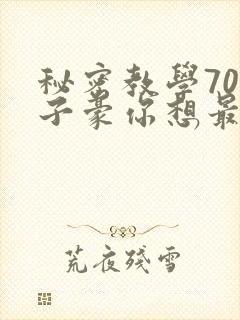 秘密教學70
子豪你想最
荒夜殘雪